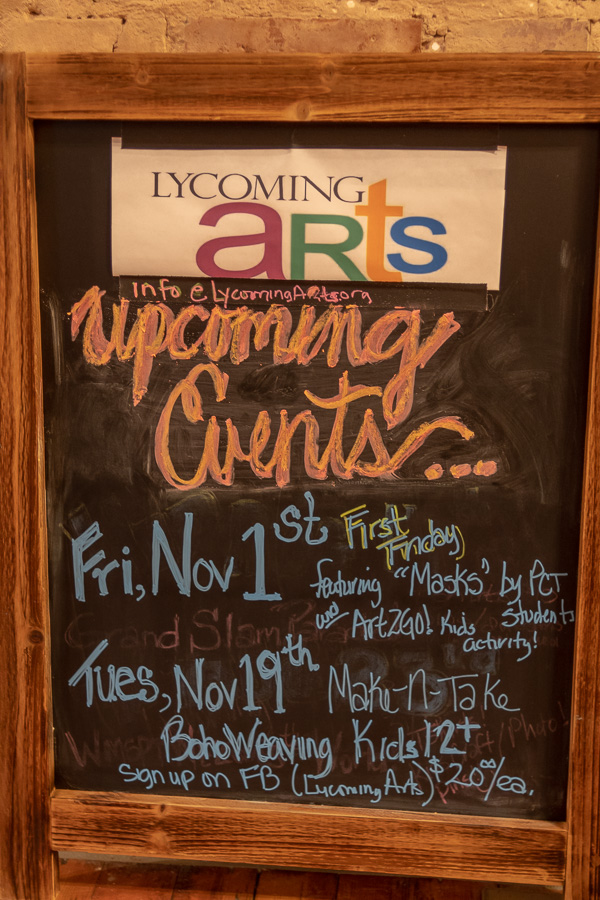 LYCOMING
arts
info @ LycomingArts.org
Upcoming
Events...
Fri, Nov 1st First Friday
featuring "Masks" by PCT Students
and Art2GO! Kids activity!
Grand Slam
Tues, Nov 19th Make-n-Take
BohoWeaving Kids 12+
Sign up on FB (Lycoming Arts) $20.00/ea.